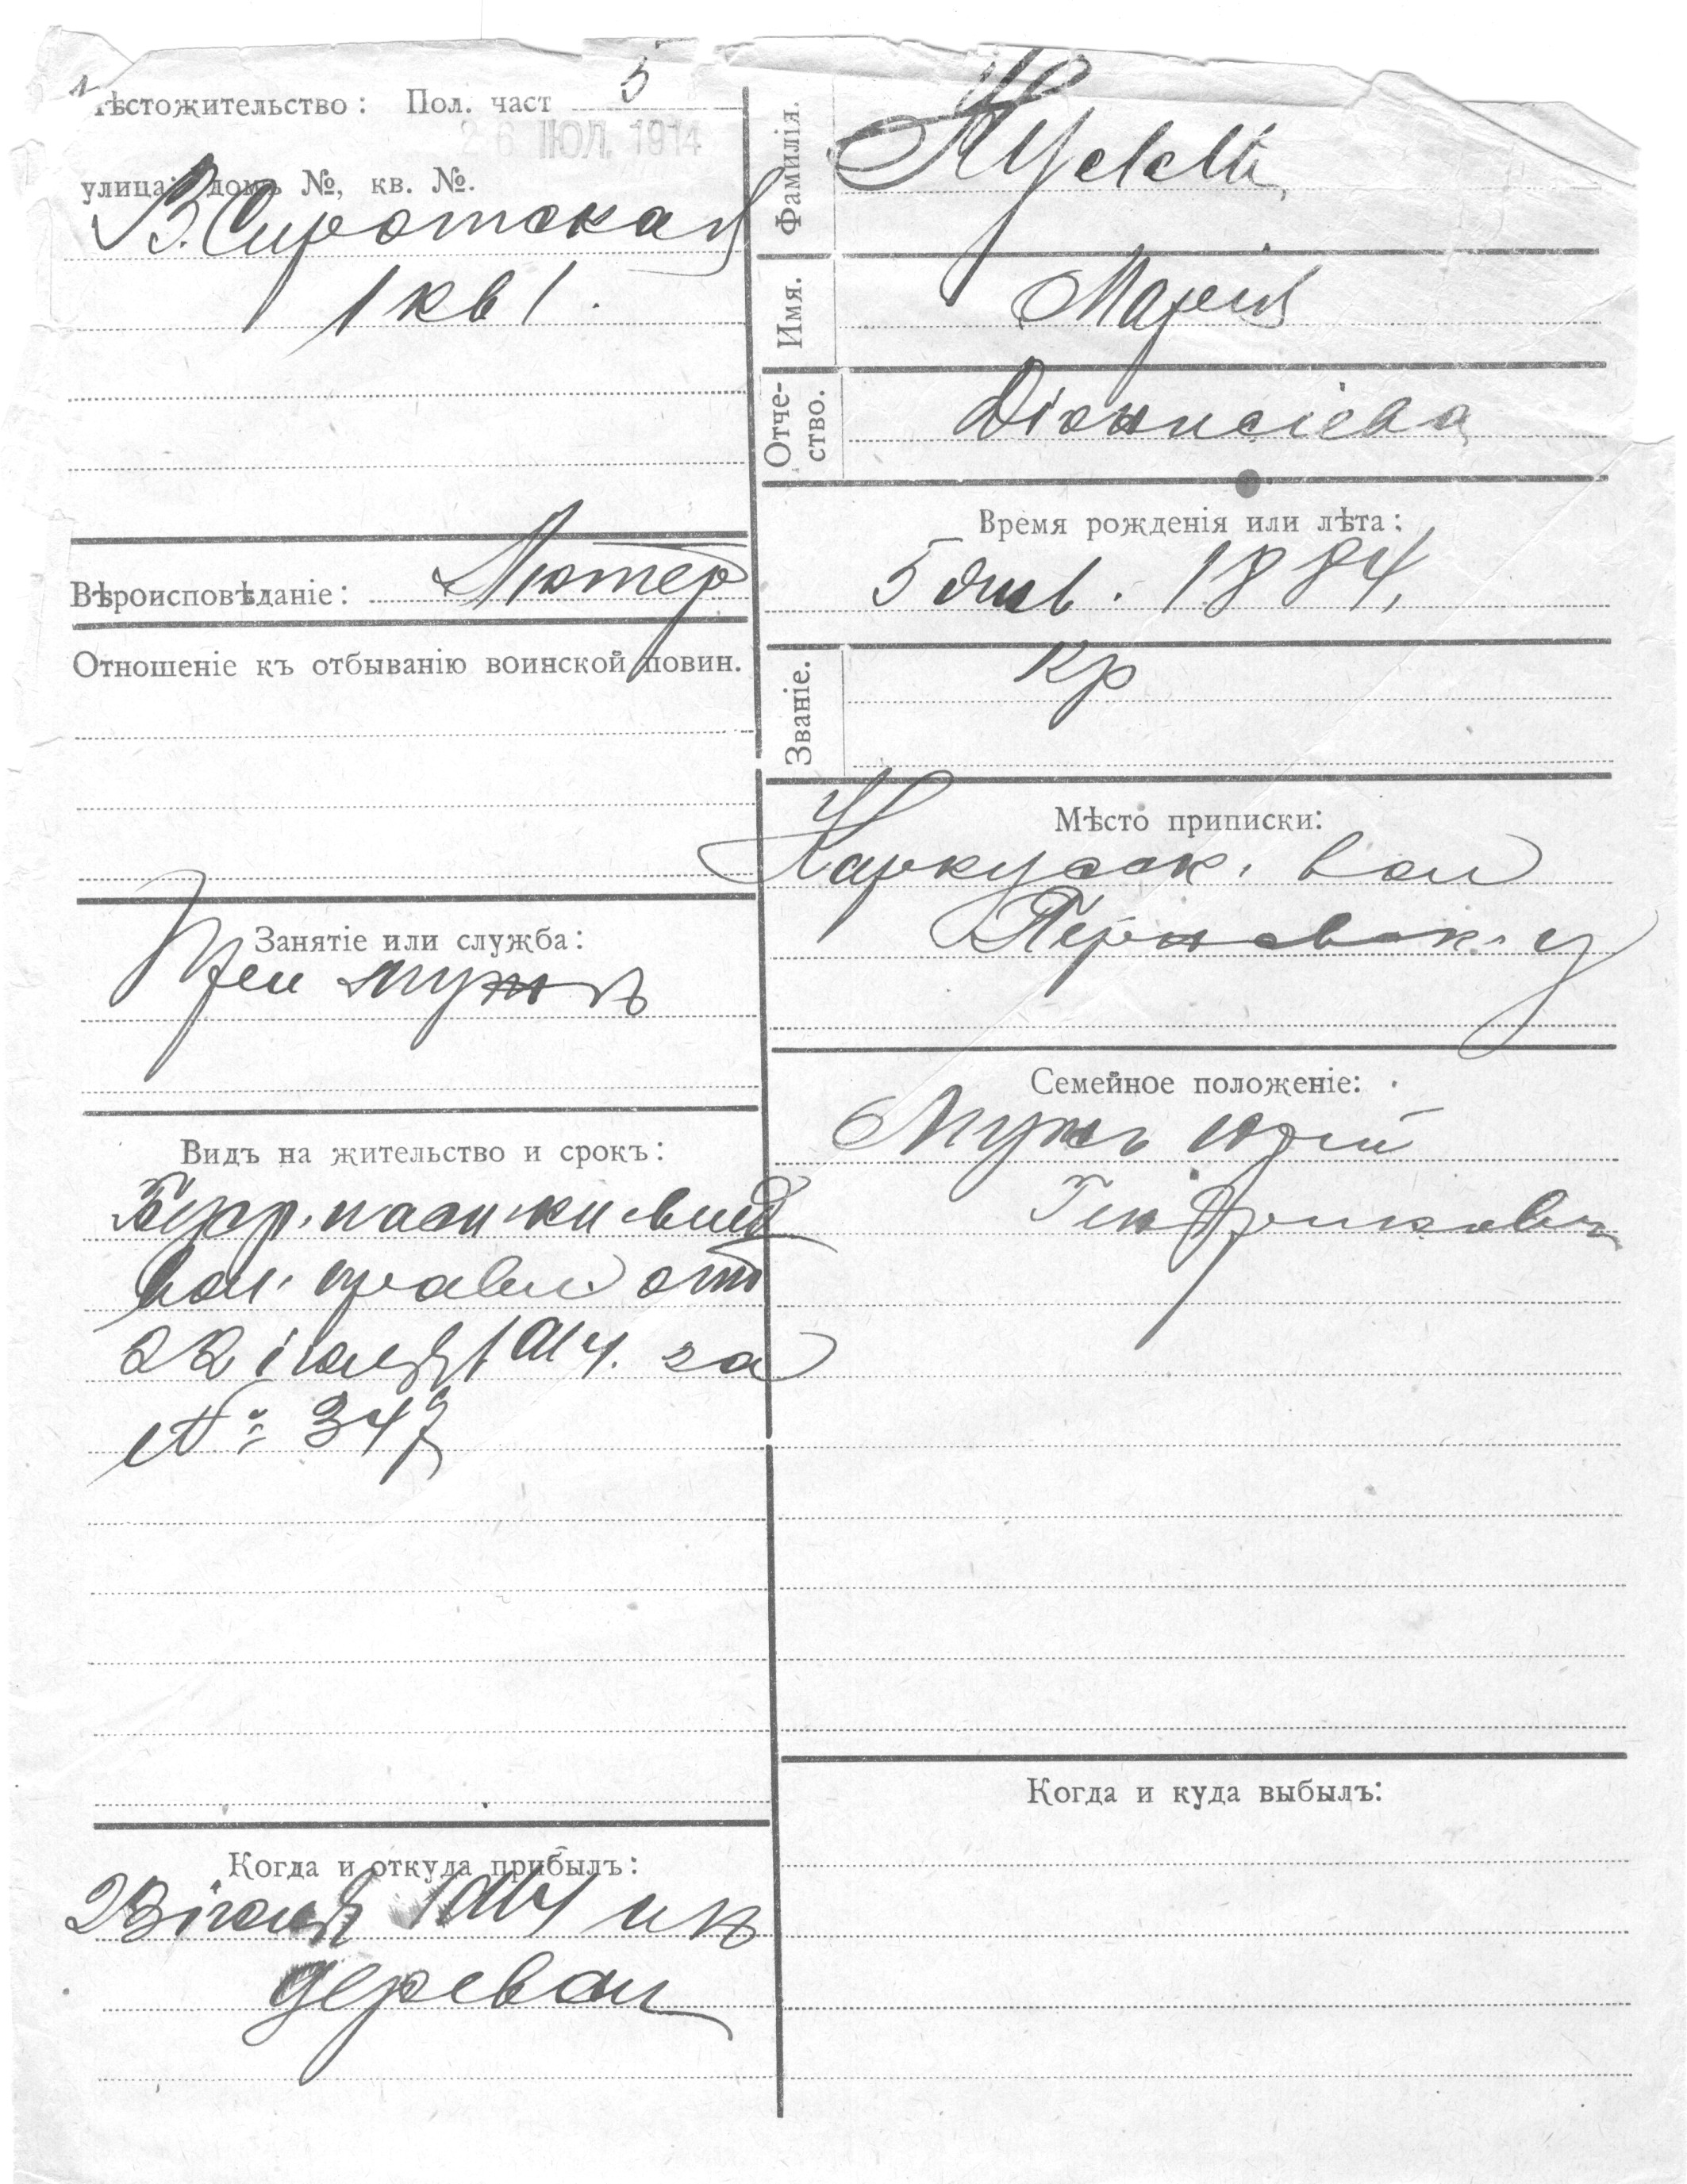 ѣстожительство: Пол. част 5
26 ІЮЛ. 1914
улица, домъ №, кв. №.
В. Сиротская
1 кв 1.
Вѣроисповѣданіе: Лютер
Отношеніе къ отбыванію воинской повин.
Занятіе или служба:
При мужѣ
Видъ на жительство и срокъ:
вол. правл. отъ
22 іюля 1914. за
№ 347
Когда и откуда прибылъ:
23 іюля 1914 изъ
деревни
Фамилія.
Имя. Марія
Отчество. Діонисіева
Время рожденія или лѣта:
5 янв. 1884,
Званіе. кр
Мѣсто приписки:
Каркусск. вол
Перновск. у
Семейное положеніе:
Мужъ Юрій
Гендрикович
Когда и куда выбылъ: